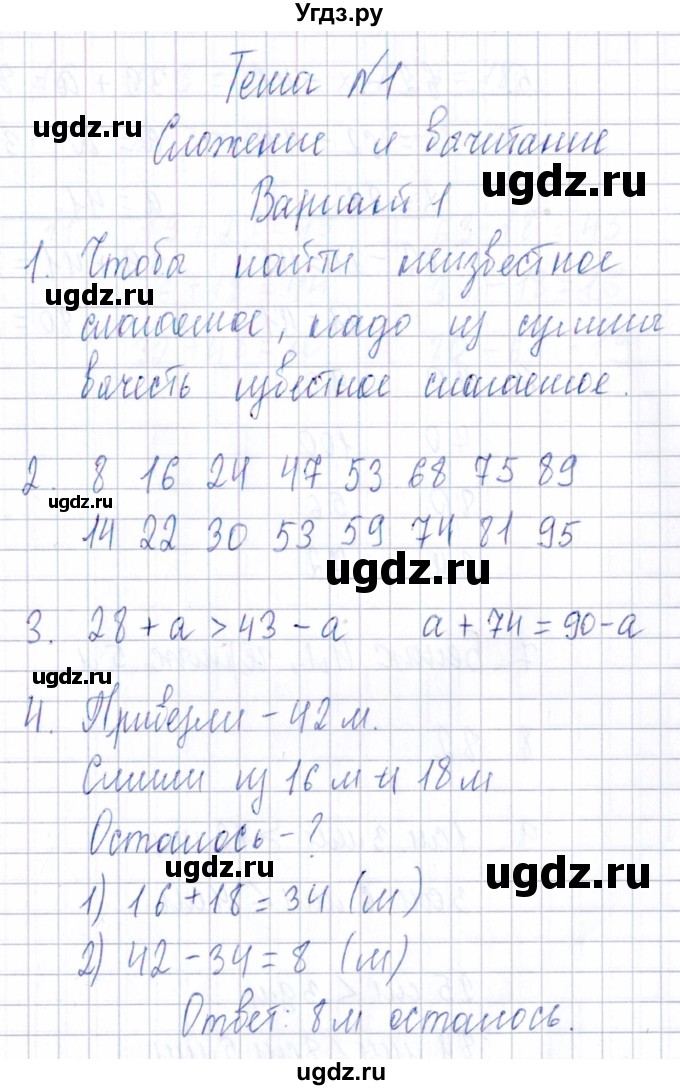 Угдз.ру
Тема №1
ugdz.ru
Сложение и вычитание
ugdz.ru
Вариант 1
1. Чтобы найти неизвестное
ugdz.ru
слагаемое, надо из суммы
вычесть известное слагаемое.
2. 8 16 24 47 53 68 75 89
ugdz.ru
14 22 30 53 59 74 81 95
ugdz.ru
3. 28 + а > 43 - а а + 74 = 90 - а
ugdz.ru
4. Привезли - 42 м.
Сшили из 16 м и 18 м
Осталось - ?
ugdz.ru
ugdz.ru
1) 16 + 18 = 34 (м)
2) 42 - 34 = 8 (м)
Ответ: 8 м осталось.
ugdz.ru